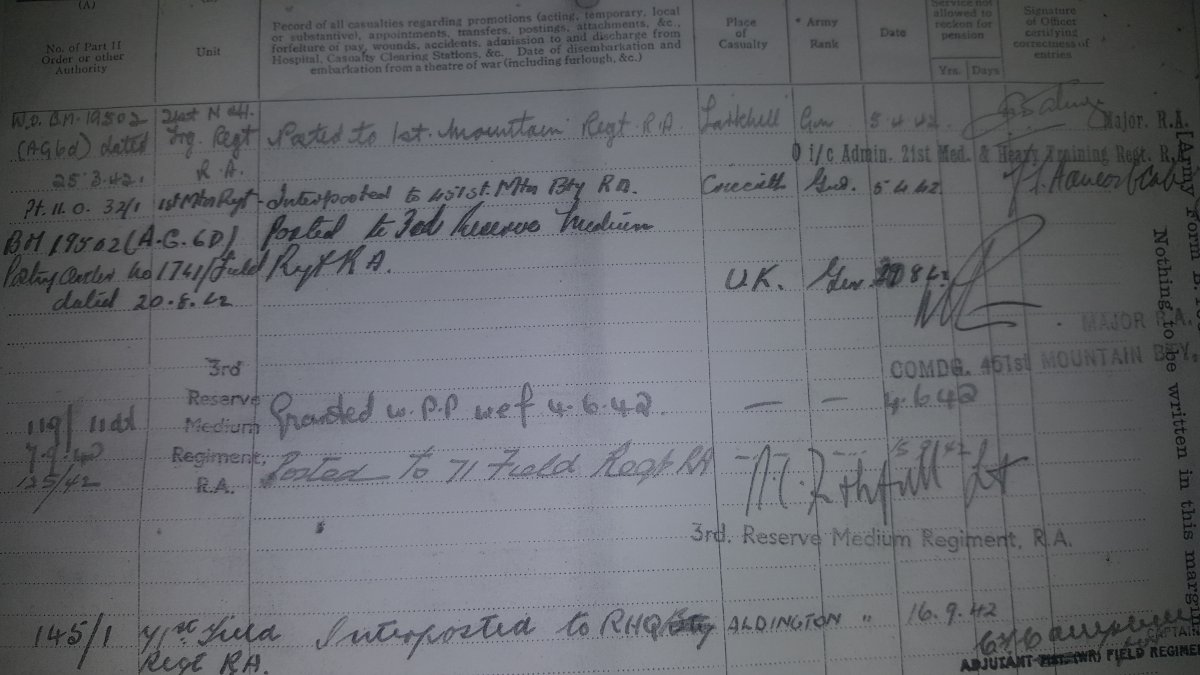 (A)
No. of Part II
Order or other
Authority
Unit
Record of all casualties regarding promotions (acting, temporary, local
or substantive), appointments, transfers, postings, attachments, &c.,
forfeiture of pay, wounds, accidents, admission to and discharge from
Hospital, Casualty Clearing Stations, &c. Date of disembarkation and
embarkation from a theatre of war (including furlough, &c.)
Place
of
Casualty
* Army
Rank
Date
Service not
allowed to
reckon for
pension
Yrs. Days
Signature
of Officer
certifying
correctness of
entries
W.O. B.M. 19502
(AG6d) dated
25.3.42.
21st M &H.
Trg. Regt
R.A.
Posted to 1st. Mountain Regt R.A.
Larkhill
Gnr
5.4.42.
Major. R.A.
O i/c Admin. 21st Med. & Heavy Training Regt. R.A.
Pt. II. O. 32/1
1st Mtn Regt
Interposted to 451st. Mtn Bty RA.
Criccieth
Gnr.
5.4.42
BM 19502 (A.G. 6D)
Posting Order No 1741/Field
dated 20.8.42
Posted to 3rd Reserve Medium
Regt RA.
U.K.
Gnr.
8.42
MAJOR R.A.
COMDG. 451st MOUNTAIN BTY.
3rd
Reserve
Medium
Regiment,
R.A.
119/
7.9.42
125/42
Granted w.P.P wef 4.6.42.
— — 4.6.42
Posted to 71 Field Regt RA
Lt
3rd. Reserve Medium Regiment, R.A.
145/1
71st Field
Regt RA.
Interposted to RHQ
ALDINGTON
"
16.9.42
CAPTAIN
ADJUTANT (WR) FIELD REGIME
[Army Form B.
Nothing to be written in this margin